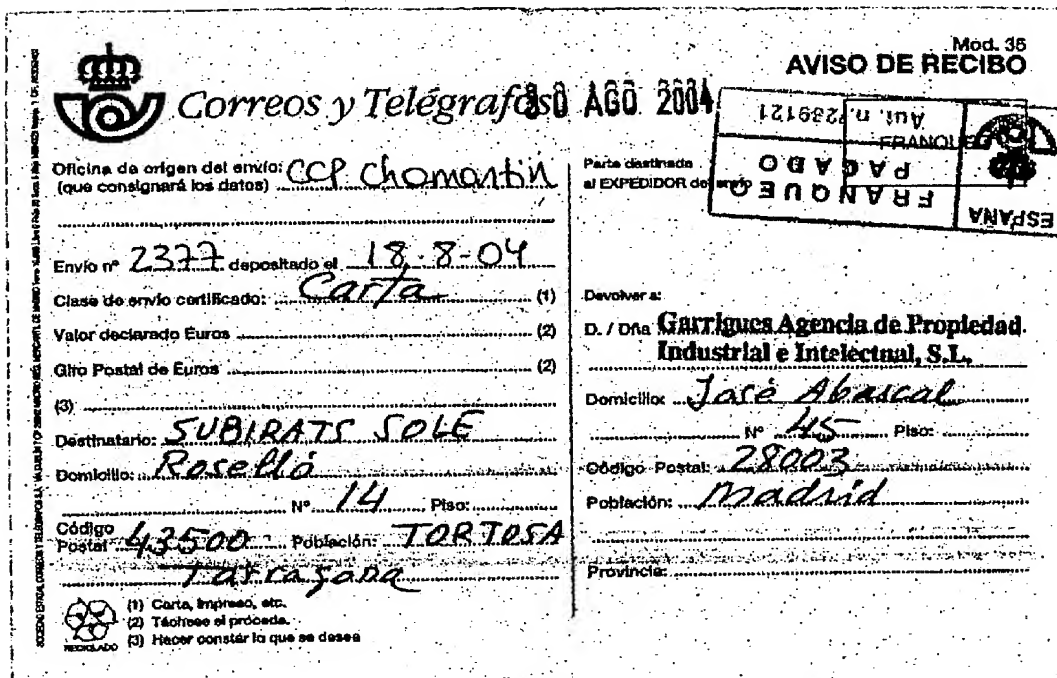 Mod. 35
AVISO DE RECIBO
Correos y Telégrafos
AGO 2004
Aut. n. 239121
FRANQUEO
PAGADO
FRANQUEO
ESPAÑA
Oficina de origen del envío: CCP Chamartín
(que consignará los datos)
Envío nº 2377 depositado el 18-8-04
Clase de envío certificado: Carta (1)
Valor declarado Euros (2)
Giro Postal de Euros (2)
(3)
Destinatario: SUBIRATS SOLE
Domicilio: Roselló
Nº 14 Piso:
Código
Postal 43500 Población: TORTOSA
Tarragona
RECICLADO
(1) Carta, Impreso, etc.
(2) Táchese si procede.
(3) Hacer constar lo que se desea
Parte destinada
al EXPEDIDOR del envío
Devolver a:
D. / Dña Garrigues Agencia de Propiedad
Industrial e Intelectual, S.L.
Domicilio: José Abascal
Nº 45 Piso:
Código Postal: 28003
Población: Madrid
Provincia: